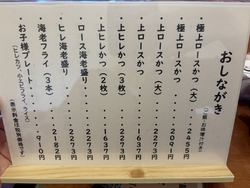 おしながき
極上ロースかつ（大）・・・2455円
極上ロースかつ・・・2091円
上ロースかつ（大）・・・2273円
上ロースかつ・・・1637円
上ヒレかつ（3枚）・・・2273円
上ヒレかつ（2枚）・・・1637円
ロース海老盛り・・・2273円
ヒレ海老盛り・・・2273円
海老フライ（3本）・・・2182円
お子様プレート・・・910円
（ヒレカツ、小エビフライ、アイス）